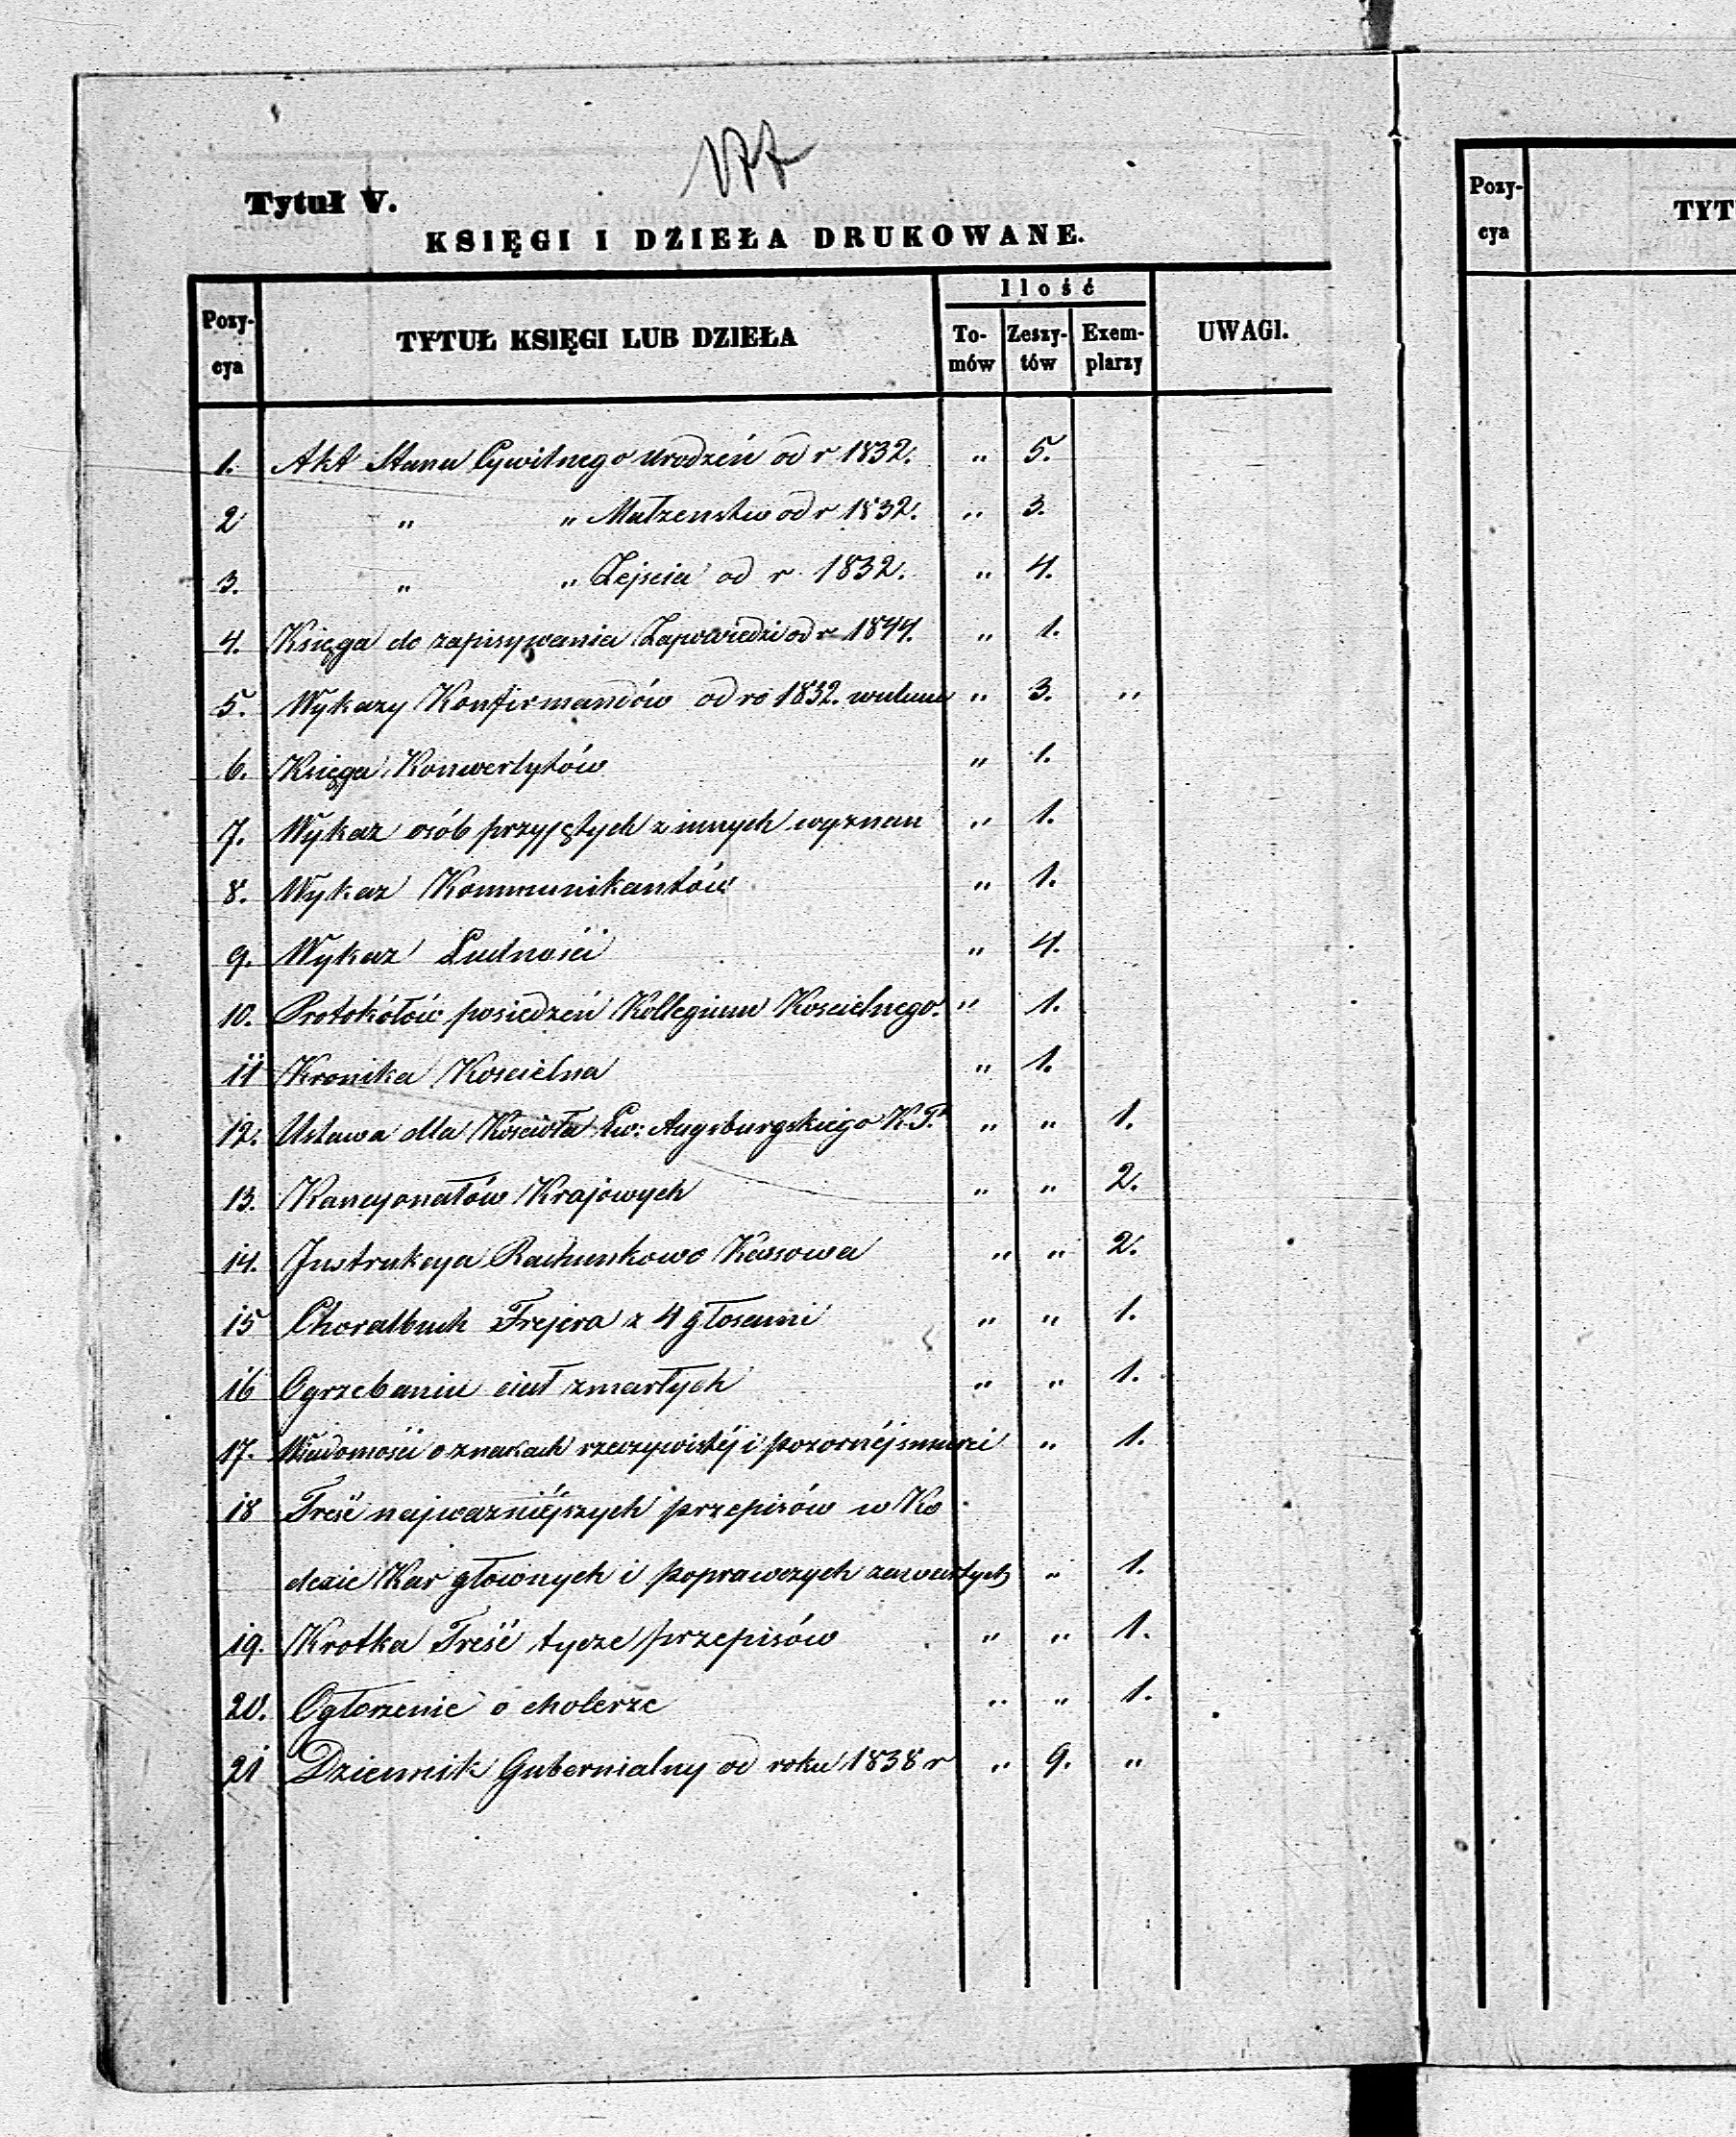 177
Tytuł V.
KSIĘGI I DZIEŁA DRUKOWANE.
Pozycya TYTUŁ KSIĘGI LUB DZIEŁA Ilość To-mów Zeszy-tów Exem-plarzy UWAGI.
1. Akt Stanu Cywilnego urodzeń od r 1832. " 5.
2 " " Małzenstw od r 1832. " 3.
3. " " Zejscia od r 1832. " 4.
4. Księga do zapisywania Zapowiedzi od r 1844. " 1.
5. Wykazy Konfirmandów od ro 1832. " 3. "
6. Księga Konwertytów " 1.
7. Wykaz osób przyjętych z innych wyznań " 1.
8. Wykaz Kommunikantów " 1.
9. Wykaz Ludności " 4.
10. Protokółów posiedzeń Kollegium Koscielnego. " 1.
11 Kronika Koscielna " 1.
12. Ustawa dla Kościoła Ew: Augsburgskiego K.P. " " 1.
13. Kancyonałów Krajowych " " 2.
14. Instrukcya Rachunkowo Kassowa " " 2.
15 Choralbuch Frejera z 4 głosami " " 1.
16 Ogrzebaniu ciał zmarłych " " 1.
17. Wiadomości o znakach rzeczywistéj i pozornéj smierci " 1.
18 Treść najwazniéjszych przepisów w Ko
dexie Kar głownych i poprawczych zawartych " 1.
19. Krotka Treść tycze przepisów " " 1.
20. Ogłoszenie o cholerze " " 1.
21 Dziennik Gubernialny od roku 1838 r " 9. "
Pozy-cya TYT